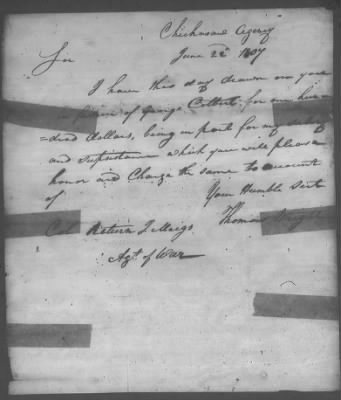 Chickasaw Agency
June 22d 1807
Sir
I have this day drawn on you
in favor of George Colbert for one hun
=dred dollars, being in part for my salary
and Subsistance which you will please
honor and Charge the same to account
of Your Humble Servt
Thomas Wright
Col Return J Meigs
Agt of War